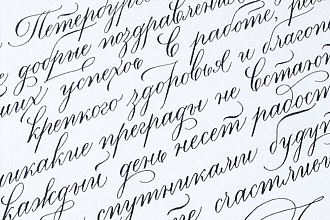 Петербург
е добрые поздравлени
ших успехов в работе, ре
крепкого здоровья и благопо
никакие преграды не встают
каждый день несет радост
спутниками будут
те счастливо